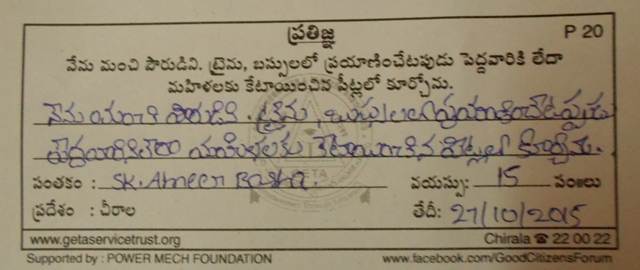 ప్రతిజ్ఞ P 20
నేను మంచి పౌరుడిని. ట్రైను, బస్సులలో ప్రయాణించేటపుడు పెద్దవారికి లేదా
మహిళలకు కేటాయించిన సీట్లలో కూర్చోను.
నేను మంచి పౌరుడిని. ట్రైను, బస్సులలో ప్రయాణించేటప్పుడు
పెద్దవారికి లేదా మహిళలకు కేటాయించిన సీట్లలో కూర్చోను.
సంతకం : SK. Ameer Basha. వయస్సు: 15 సం॥లు
ప్రదేశం : చీరాల తేదీ: 27/10/2015
www.getaservicetrust.org Chirala ☎ 22 00 22
Supported by : POWER MECH FOUNDATION www.facebook.com/GoodCitizensForum